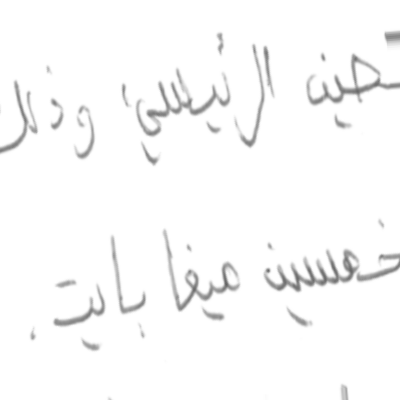 الرئيسي وذلك
خمسين ميغا بايت.